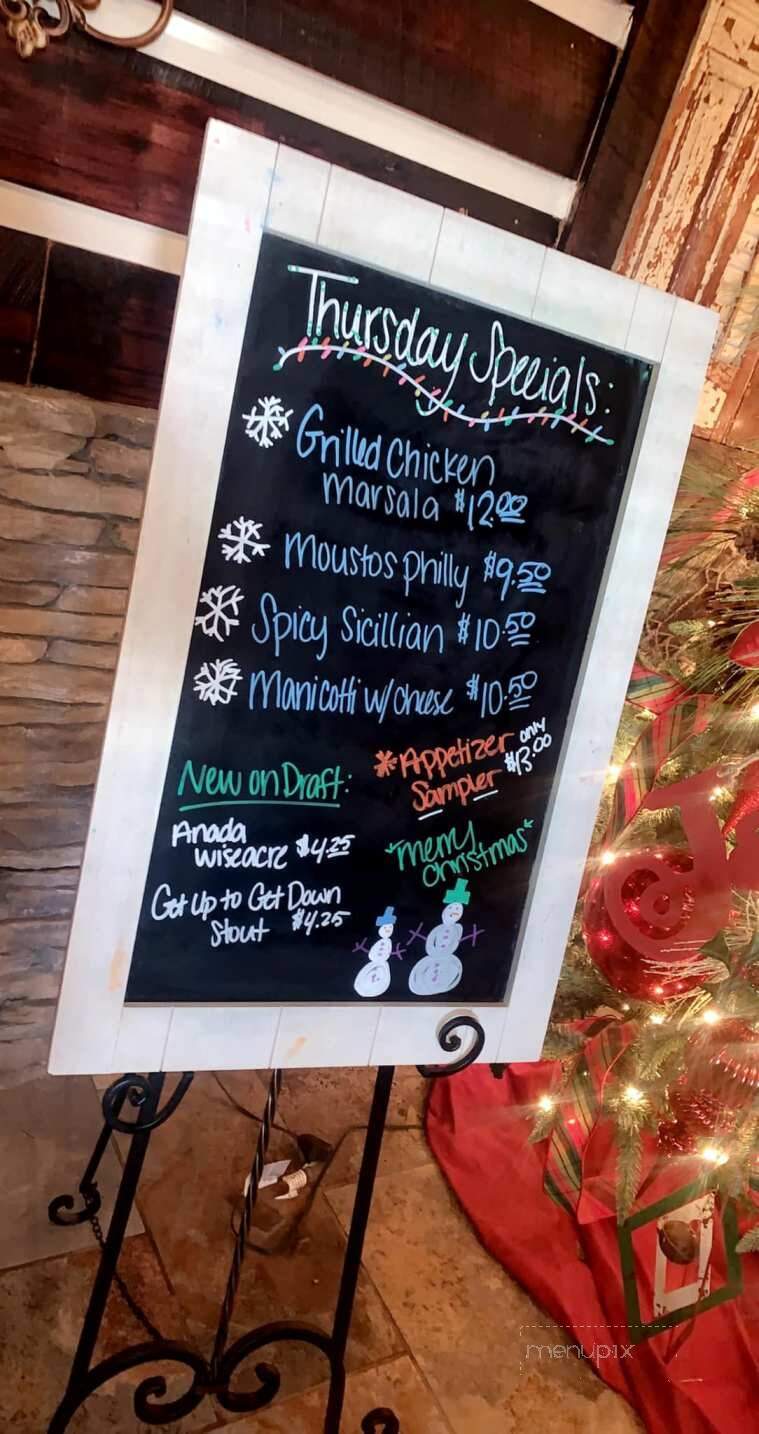 Thursday Specials:
Grilled Chicken
marsala $12.00
Moustos philly $9.50
Spicy Sicillian $10.50
Manicotti w/ cheese $10.50
*Appetizer only
Sampler $13.00
New on Draft:
Anada
wiseacre $4.25
"merry
christmas"
Get Up to Get Down
Stout $4.25
menupix